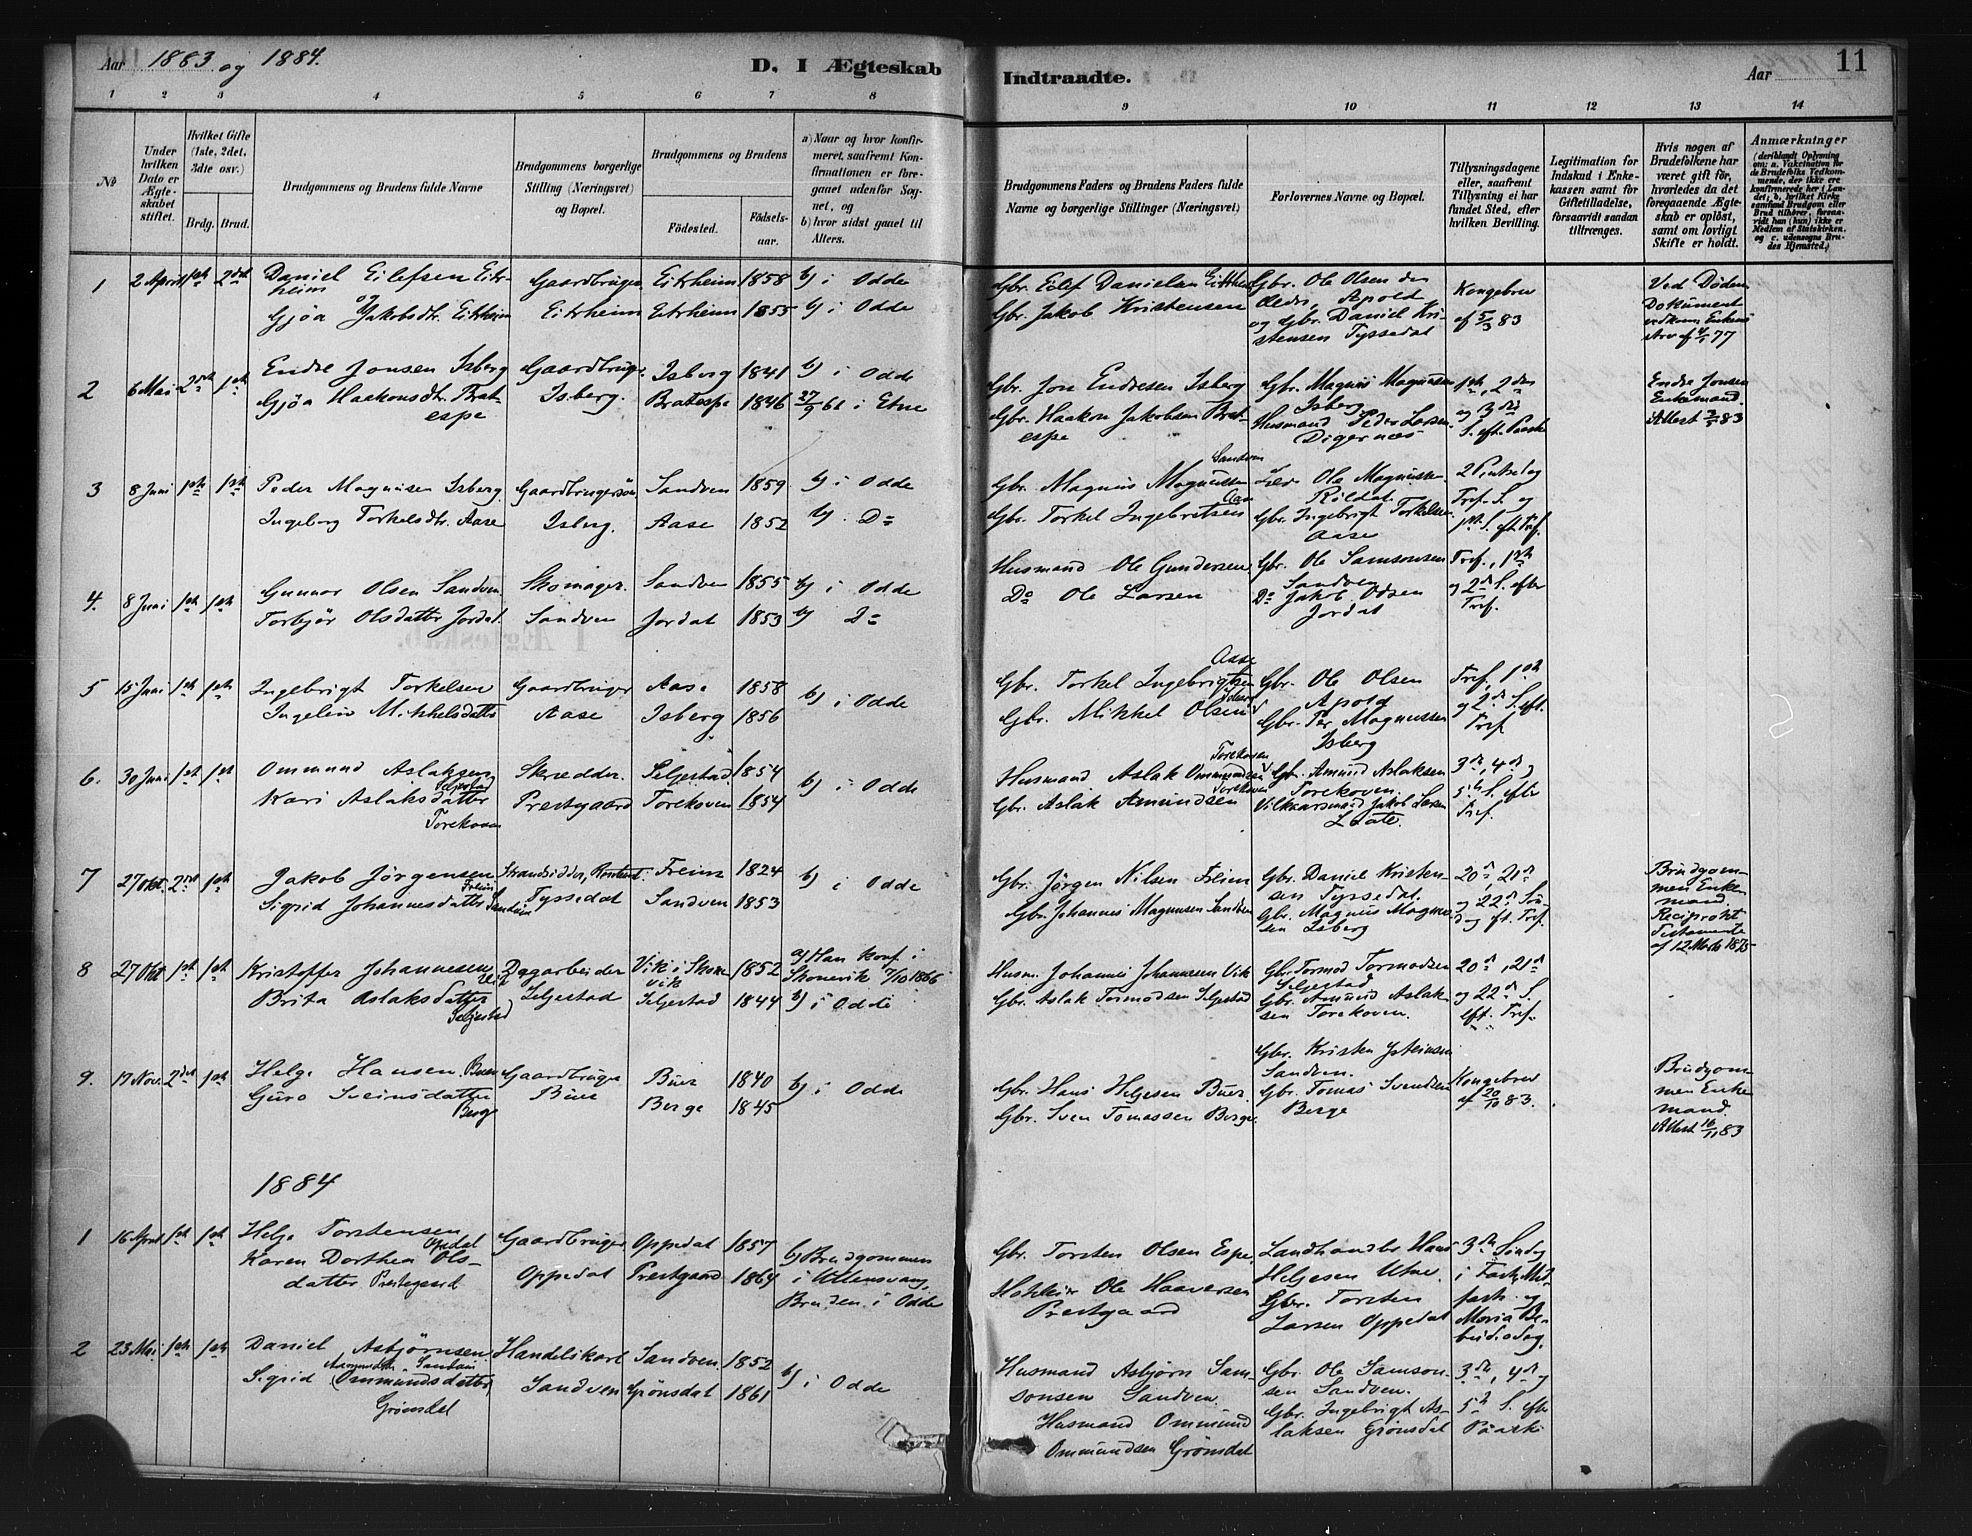 Aar 1883 og 1884.
D. I Ægteskab
Indtraadte.
Aar
11
1 2 3 4 5 6 7 8 9 10 11 12 13 14
No
Under hvilken Dato er Ægteskabet stiftet.
Hvilket Gifte (1ste, 2det, 3dte osv.)
Brdg. Brud.
Brudgommens og Brudens fulde Navne
Brudgommens borgerlige Stilling (Næringsvei) og Bopæl.
Brudgommens og Brudens
Födested.
Födsels-aar.
a) Naar og hvor konfirmeret, saafremt Konfirmationen er foregaaet udenfor Sognet, og
b) hvor sidst gaaet til Alters.
Brudgommens Faders og Brudens Faders fulde Navne og borgerlige Stillinger (Næringsvei)
Forlovernes Navne og Bopæl.
Tillysningsdagene eller, saafremt Tillysning ei har fundet Sted, efter hvilken Bevilling.
Legitimation for Indskud i Enkekassen samt for Giftetilladelse, forsaavidt saadan tiltrænges.
Hvis nogen af Brudefolkene har været gift för, hvorledes da det foregaaende Ægteskab er oplöst, samt om lovligt Skifte er holdt.
Anmærkninger
(deriblandt Oplysning om: a. Vakcination for de Brudefolks Vedkommende, der ikke ere konfirmerede her i Landet, b. hvilket Kirkesamfund Brudgom eller Brud tilhörer, forsaavidt han (hun) ikke er Medlem af Statskirken, og c. udensogns Brudes Hjemsted.)
1 2 April 1ste 2det Daniel Eilefsen Eitrheim Gaardbruger Eitrheim 1858 b) i Odde Gbr. Eilef Danielsen Eitrheim Gbr. Ole Olsen den Kongebrev Ved Döden
Gjöa Jakobsdtr. Eitrheim Eitrheim Eitrheim 1855 b) i Odde Gbr. Jakob Kristensen Apold og Gbr. Daniel Kristensen Tyssedal af 5/3 83 Dokument
2 6 Mai 2det 1ste Endre Jonsen Isberg Gaardbrug. Isberg 1841 b) i Odde Gbr. Jon Endresen Isberg Gbr. Magnus Magnussen Isberg 1ste, 2den Endre Jonsen Enkemand.
Gjöa Haakonsdtr. Bratespe Isberg. Bratespe 1846 27/9 61 i Etne Gbr. Haakon Jakobsen Bratespe Husmand Peder Larsen Digernæs og 3die S. eft. Paaske Attest 3/5 83
3 8 Juni 1ste 1ste Peder Magnusen Isberg Gaardbrugersön Sandven 1859 b) i Odde Gbr. Magnus Magnussen Sandven Ole Magnussen Röldal 2 Pintsedag
Ingeborg Torkelsdtr. Aase Isberg. Aase 1852 b) Do Gbr. Torkel Ingebretsen Aase Gbr. Ingebrigt Torkelsen Aase Tref. S. og 1ste S. eft. Tref.
4. 8 Juni 1ste 1ste Gunnar Olsen Sandven Skomager. Sandven 1855 b) i Odde Husmand Ole Gundersen Gbr. Ole Samsonsen Sandven Tref., 1ste
Torbjör Olsdatter Jordal Sandven Jordal 1853 b) Do Do Ole Larsen Do Jakob Odsen Jordal og 2den S. efter Tref.
5 15 Juni 1ste 1ste Ingebrigt Torkelsen Gaardbruger Aase 1858 b) i Odde Gbr. Torkel Ingebrigtsen Aase Gbr. Ole Olsen Apold Tref., 1ste
Ingelin Mikkelsdatter Aase Isberg 1856 Gbr. Mikkel Olsen Gbr. Per Magnussen Isberg og 2den S. eft. Tref
6. 30 Juni 1ste 1ste Ommund Aslaksen Seljestad Skrædder. Seljestad 1854 b) i Odde Husmand Aslak Ommundsen Torekoven Gbr. Amund Aslaksen Torekoven 3die, 4de
Kari Aslaksdatter Torekoven Prestgaard Torekoven 1854 Gbr. Aslak Amundsen Torekoven Vilkaarsmand Jakob Larsen Lote. 5te S. efter Tref.
7 27 Okt. 2det 1ste Jakob Jörgensen Freim Strandsidder, Freim 1824 b) i Odde Gbr. Jörgen Nilsen Freim Gbr. Daniel Kristensen Tyssedal. 20de, 21de Brudgommen Enkemand.
Sigrid Johannesdatter Sandven Tyssedal Sandven 1853 Gbr. Johannes Magnusen Sandven Gbr. Magnus Magnussen Isberg og 22de Söndag eft. Tref. Reciprokt Testamente af 12 Marts 1875
8 27 Okt 1ste 1ste Kristoffer Johannesen Vik Dagarbeider Vik i Skonevik 1852 a) Han konf. i Skonevik 7/10 1866 Husm. Johannes Johannesen Vik Gbr. Tormod Tormodsen Seljestad 20de, 21de
Brita Aslaksdatter Seljestad Seljestad Seljestad 1844 b) i Odde Gbr. Aslak Tormodsen Seljestad Gbr. Amund Aslaksen Torekoven. og 22de S. eft. Tref.
9. 17 Nov. 2det 1ste Helge Hansen Buer Gaardbruger Buer 1840 b) i Odde Gbr. Hans Helgesen Buer Gbr. Kristen Sandven. Kongebrev Brudgommen Enkemand.
Guro Sveinsdatter Berge Buer Berge 1845 Gbr. Sven Tomassen Berge. Gbr. Tomas Svendsen Berge af 20/10 83. Attest 16/11 83
1884
1 16 April 1ste 1ste Helge Torstensen Opedal Gaardbruger Oppedal 1857 b) Brudgommen i Ullensvang, Gbr. Torsten Olsen Espe, Landhandler Hans Helgesen Utne. 3die Söndag i Faste, Midfaste og
Karen Dorthea Olsdatter Prestegaard Oppedal Prestgaard 1864 Bruden i Odde Ole Haaversen Prestgaard Gbr. Torsten Larsen Oppedal Maria Bebudelsesdag.
2 23 Mai 1ste 1ste Daniel Asbjörnsen Sandven Handelskarl Sandven. 1852 b) i Odde Husmand Asbjörn Samsonsen Sandven. Gbr. Ole Samsonsen Sandven. 3die, 4de og
Sigrid Ommundsdatter Grönsdal Sandven Grönsdal 1861 Husmand Ommund Ommundsen Grönsdal Gbr. Ingebrigt Aslaksen Grönsdal 5te S. efter Paaske